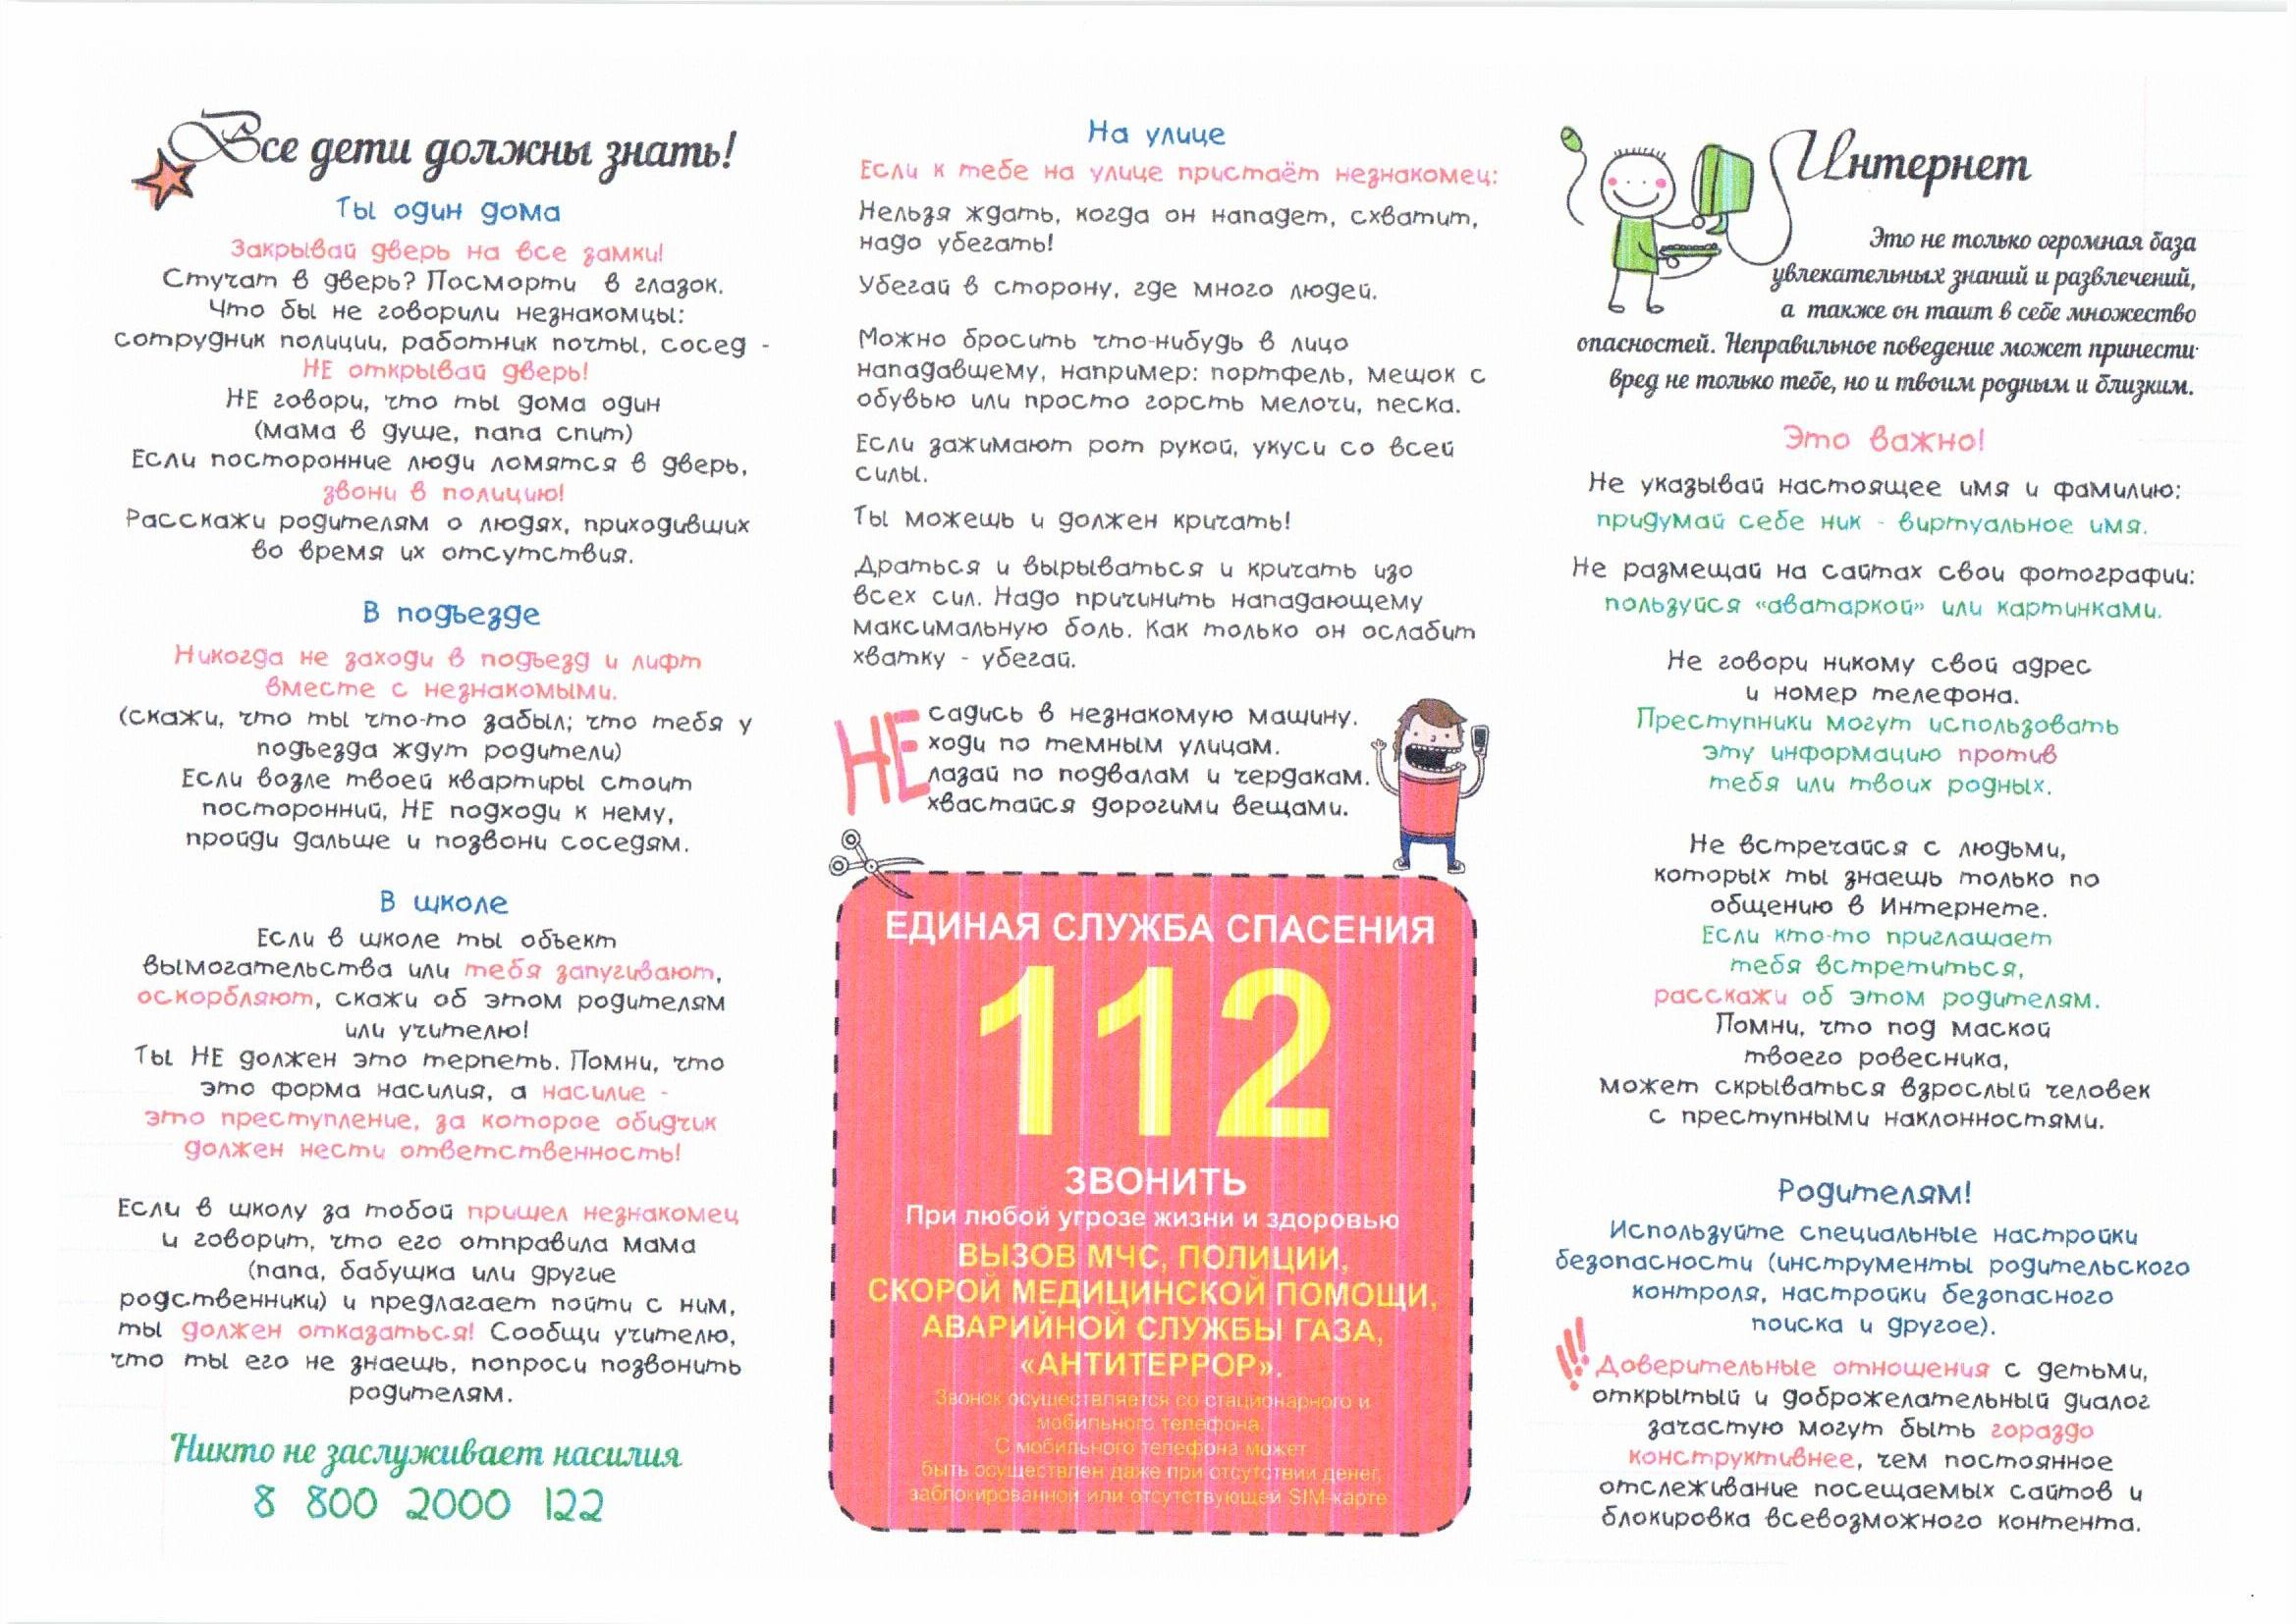 Все дети должны знать!
Ты один дома
Закрывай дверь на все замки!
Стучат в дверь? Посморти в глазок.
Что бы не говорили незнакомцы:
сотрудник полиции, работник почты, сосед -
НЕ открывай дверь!
НЕ говори, что ты дома один
(мама в душе, папа спит)
Если посторонние люди ломятся в дверь,
звони в полицию!
Расскажи родителям о людях, приходивших
во время их отсутствия.
В подъезде
Никогда не заходи в подъезд и лифт
вместе с незнакомыми.
(скажи, что ты что-то забыл; что тебя у
подъезда ждут родители)
Если возле твоей квартиры стоит
посторонний, НЕ подходи к нему,
пройди дальше и позвони соседям.
В школе
Если в школе ты объект
вымогательства или тебя запугивают,
оскорбляют, скажи об этом родителям
или учителю!
Ты НЕ должен это терпеть. Помни, что
это форма насилия, а насилие -
это преступление, за которое обидчик
должен нести ответственность!
Если в школу за тобой пришел незнакомец
и говорит, что его отправила мама
(папа, бабушка или другие
родственники) и предлагает пойти с ним,
ты должен отказаться! Сообщи учителю,
что ты его не знаешь, попроси позвонить
родителям.
Никто не заслуживает насилия
8 800 2000 122
На улице
Если к тебе на улице пристаёт незнакомец:
Нельзя ждать, когда он нападет, схватит,
надо убегать!
Убегай в сторону, где много людей.
Можно бросить что-нибудь в лицо
нападавшему, например: портфель, мешок с
обувью или просто горсть мелочи, песка.
Если зажимают рот рукой, укуси со всей
силы.
Ты можешь и должен кричать!
Драться и вырываться и кричать изо
всех сил. Надо причинить нападающему
максимальную боль. Как только он ослабит
хватку - убегай.
НЕ
садись в незнакомую машину.
ходи по темным улицам.
лазай по подвалам и чердакам.
хвастайся дорогими вещами.
ЕДИНАЯ СЛУЖБА СПАСЕНИЯ
112
ЗВОНИТЬ
При любой угрозе жизни и здоровью
ВЫЗОВ МЧС, ПОЛИЦИИ,
СКОРОЙ МЕДИЦИНСКОЙ ПОМОЩИ,
АВАРИЙНОЙ СЛУЖБЫ ГАЗА,
«АНТИТЕРРОР».
Звонок осуществляется со стационарного и
мобильного телефона.
С мобильного телефона может
быть осуществлен даже при отсутствии денег,
заблокированной или отсутствующей SIM-карте
Интернет
Это не только огромная база
увлекательных знаний и развлечений,
а также он таит в себе множество
опасностей. Неправильное поведение может принести
вред не только тебе, но и твоим родным и близким.
Это важно!
Не указывай настоящее имя и фамилию:
придумай себе ник - виртуальное имя.
Не размещай на сайтах свои фотографии:
пользуйся «аватаркой» или картинками.
Не говори никому свой адрес
и номер телефона.
Преступники могут использовать
эту информацию против
тебя или твоих родных.
Не встречайся с людьми,
которых ты знаешь только по
общению в Интернете.
Если кто-то приглашает
тебя встретиться,
расскажи об этом родителям.
Помни, что под маской
твоего ровесника,
может скрываться взрослый человек
с преступными наклонностями.
Родителям!
Используйте специальные настройки
безопасности (инструменты родительского
контроля, настройки безопасного
поиска и другое).
!!! Доверительные отношения с детьми,
открытый и доброжелательный диалог
зачастую могут быть гораздо
конструктивнее, чем постоянное
отслеживание посещаемых сайтов и
блокировка всевозможного контента.